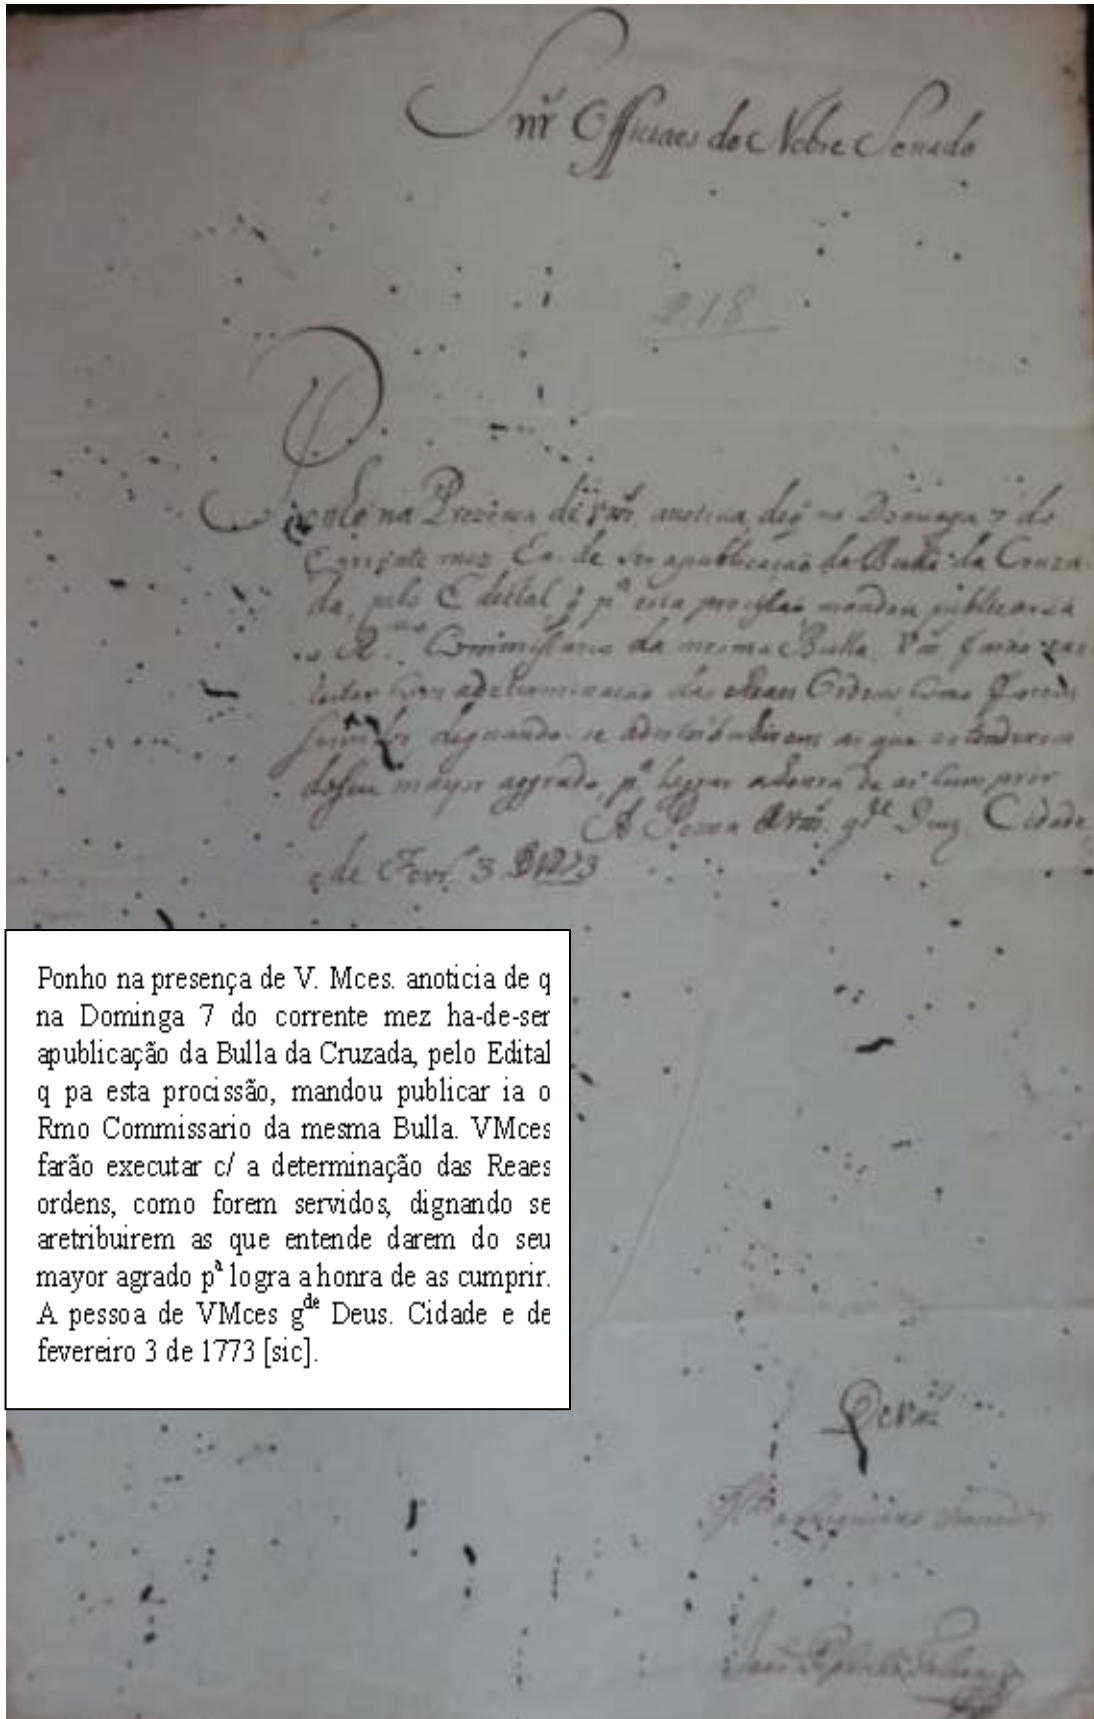 Snr̃ Officiaes do Nobre Senado
218
Ponho na Prezença de Vmces anoticia, deq̃ na Dominga 7 do
Corrente mez Ha-de ser apublicação da Bulla da Cruza-
da, pelo Edital q̃ pª esta procissão, mandou publicar ia
o R.mo Commissario da mesma Bulla. Vmces farão exe-
cutar com adeterminação das Reaes Ordens, como forem
servidos dignando-se adestribuirem as que entenderem
doSeu mayor aggrado, pª lograr ahonra de as cumprir.
A Pessoa deVmces gde Deus. Cidade
e de Fevr.º 3 de 1773
Ponho na presença de V. Mces. anoticia de q
na Dominga 7 do corrente mez ha-de-ser
apublicação da Bulla da Cruzada, pelo Edital
q pa esta procissão, mandou publicar ia o
Rmo Commissario da mesma Bulla. VMces
farão executar c/ a determinação das Reaes
ordens, como forem servidos, dignando se
aretribuirem as que entende darem do seu
mayor agrado pª logra a honra de as cumprir.
A pessoa de VMces gde Deus. Cidade e de
fevereiro 3 de 1773 [sic].
DeVmces